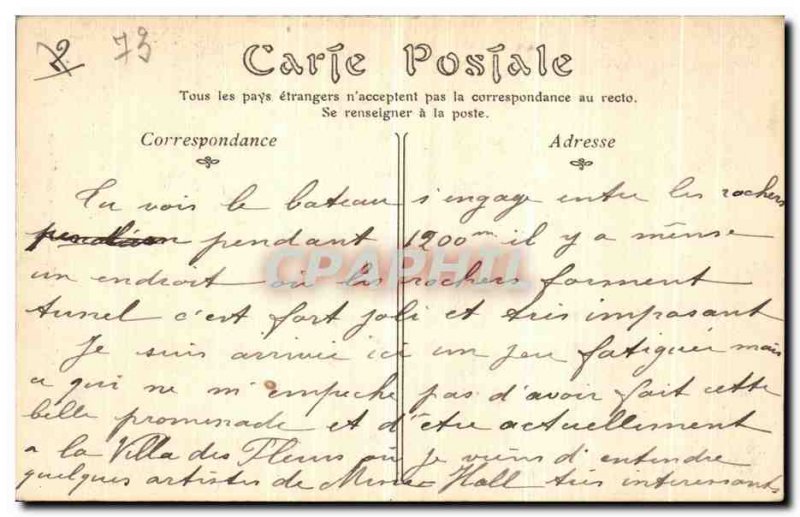 2 73
Carte Postale
Tous les pays étrangers n'acceptent pas la correspondance au recto.
Se renseigner à la poste.
Correspondance
Adresse
Tu vois le bateau s'engage entre les rochers
pendant 1200m il y a même
un endroit où les rochers forment
tunel c'est fort joli et très imposant
Je suis arrivée ici un peu fatiguée mais
a qui ne m'empeche pas d'avoir fait cette
belle promenade et d'être actuellement
a la Villa des Fleurs où je viens d'entendre
quelques artistes de Music Hall très interessants
CPAPHIL